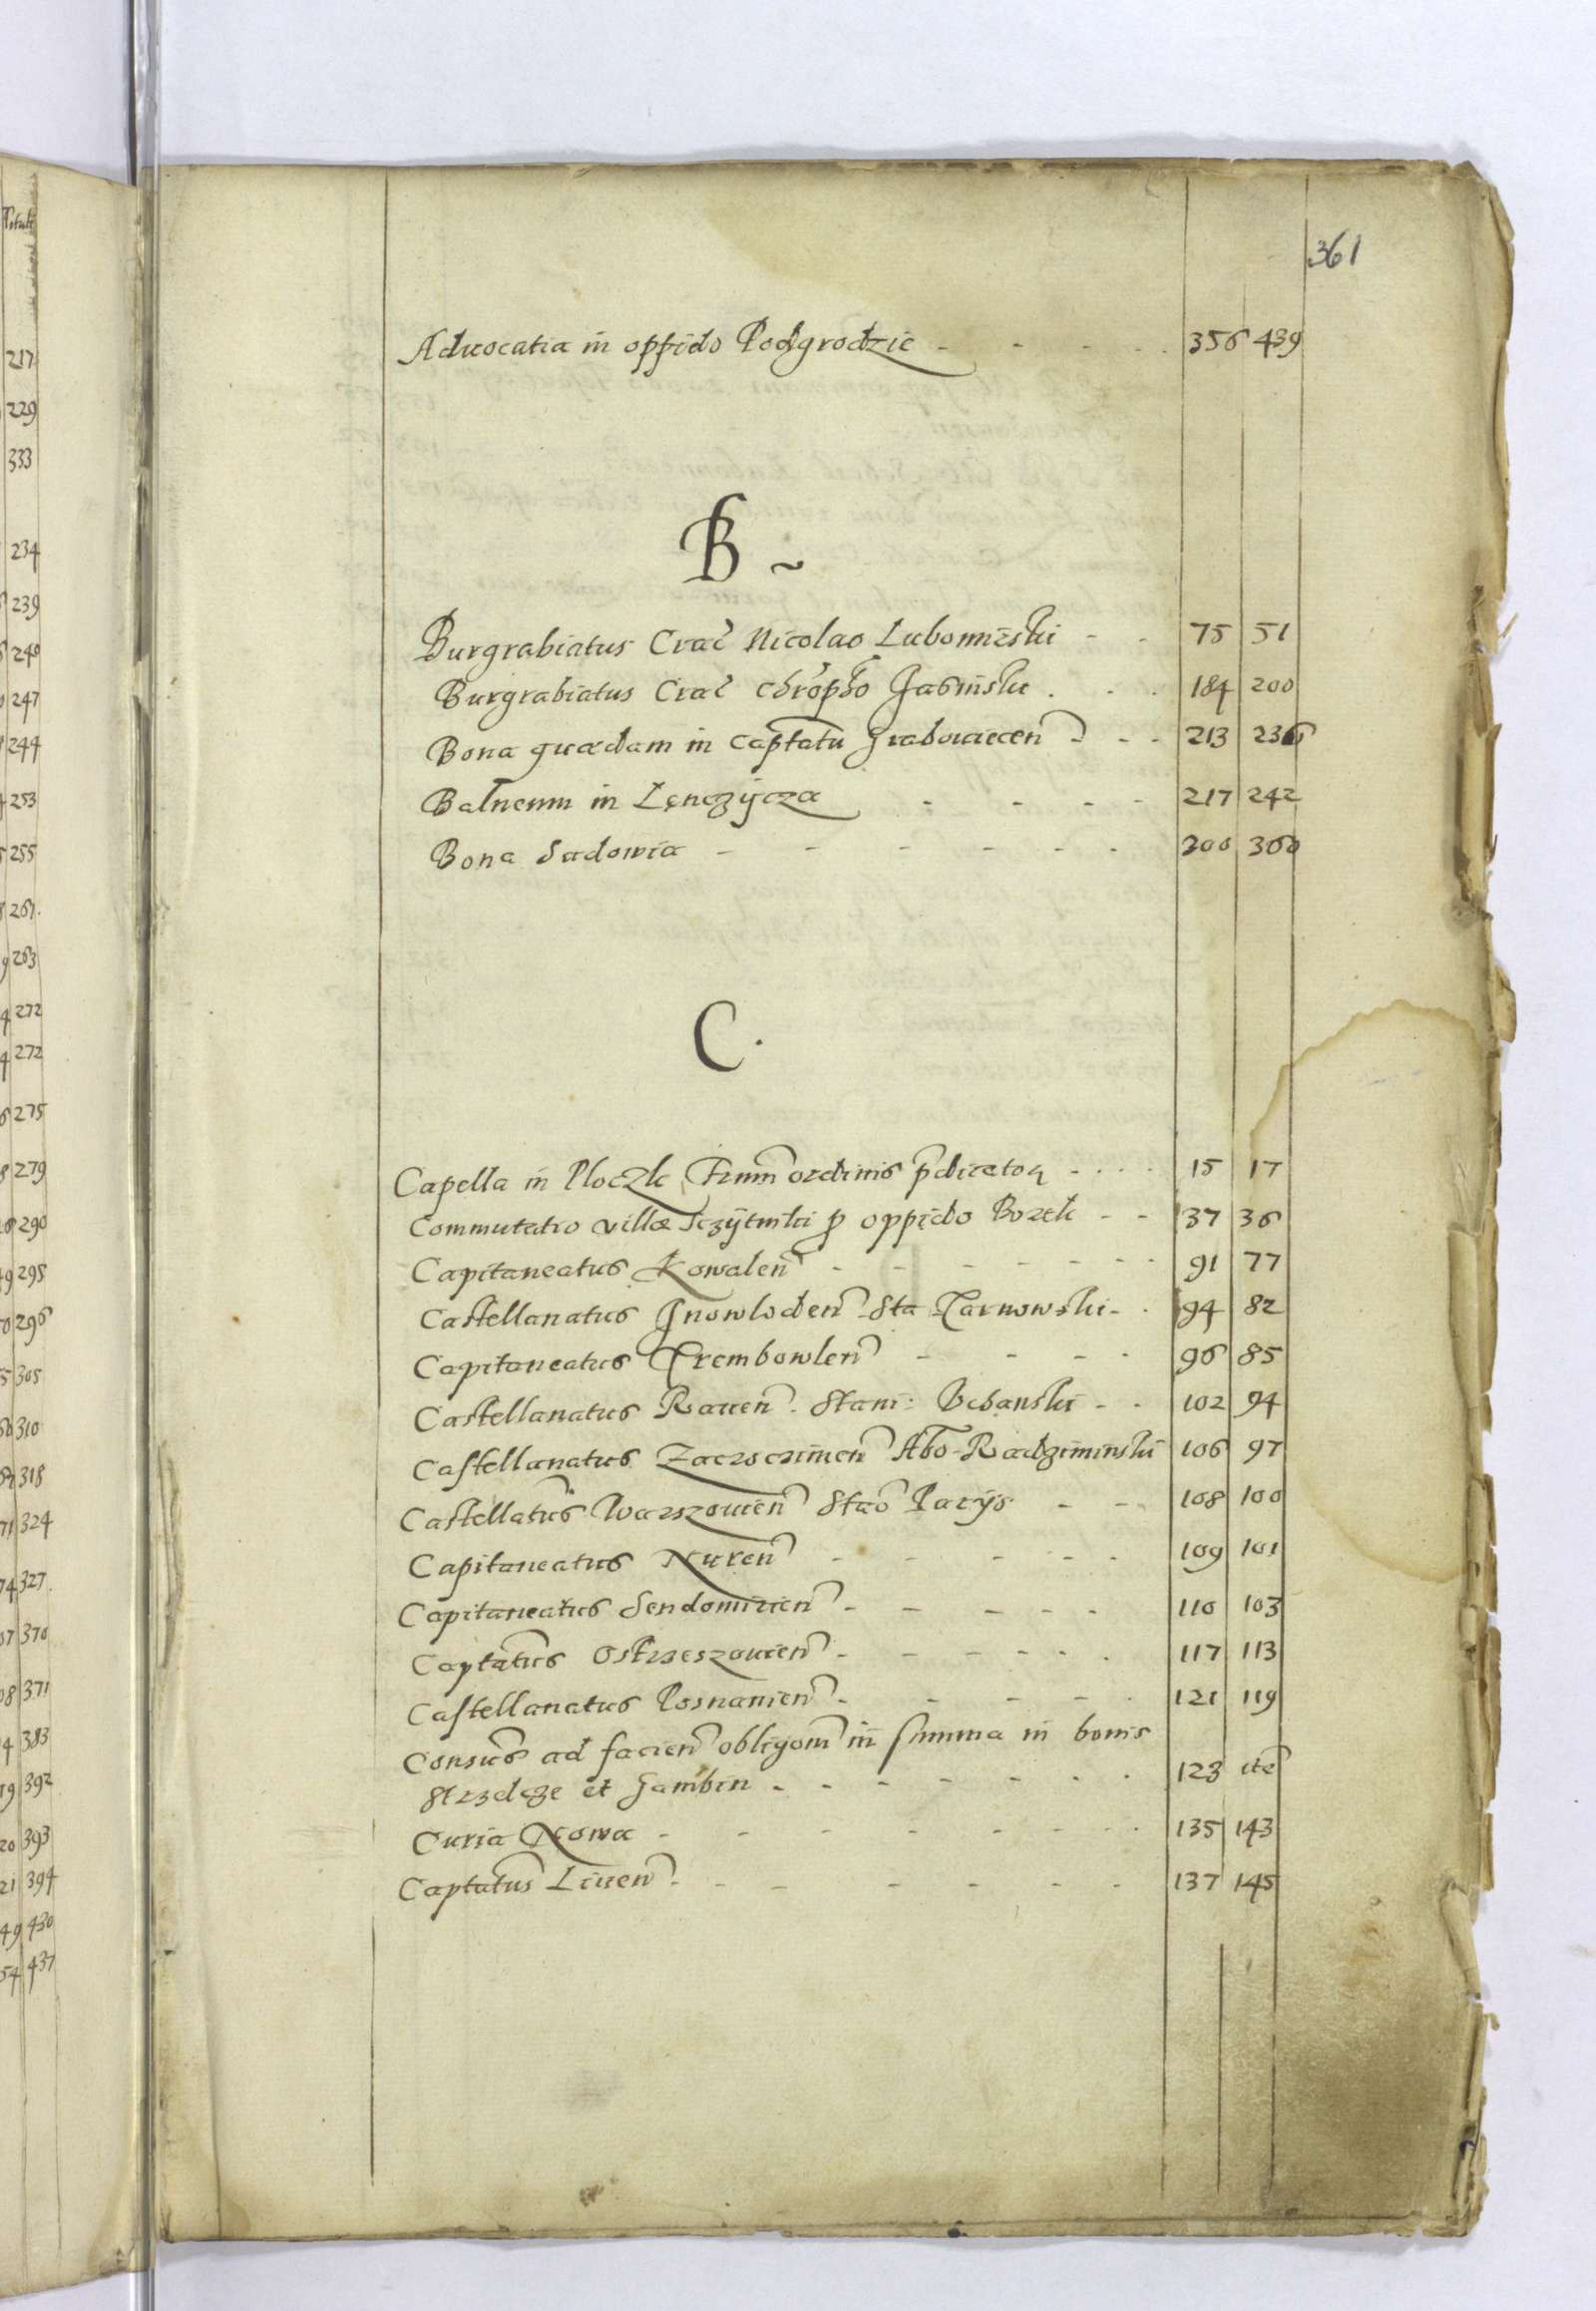 361
Aduocatia in oppido Podgrodzie - - - - 356 439
B ~
Burgrabiatus Crac Nicolao Lubomirski - - 75 51
Burgrabiatus Crac Chropho Jabinski . - - 184 200
Bona quædam in Captatu Graboviecen - - - 213 236
Balneum in Lęnczÿcza - - - - 217 242
Bona Sadowia - - - - - - 300 360
C.
Capella in Ploczk Frum ordinis pdicator - - - - 15 17
Commutatio villæ Sczÿtniki p oppido Borek - - 37 36
Capitaneatus Kowalen - - - - - - - 91 77
Castellanatus Jnowloden Sta Tarnowski - . 94 82
Capitaneatus Trembowlen - - - - 96 85
Castellanatus Rauen . Stani: Bebanski - - 102 94
Castellanatus Zacroczimen Abo Radziminski 106 97
Castellatus Warszouien Stao Parÿs - - 108 100
Capitaneatus Nuren - - - - - - 109 101
Capitaneatus Sendomirien - - - - - 110 103
Captatus Ostrzeszouien - - - - - . 117 113
Castellanatus Posnanien - - - - . 121 119
Consus ad facien obligom in summa in bonis
Strzelcze et Gambin - - - - - - . 123 ite
Curia Nowa - - - - - - - . 135 143
Captatus Liuen - - - - - - - 137 145
Titule
217
229
333
234
239
240
247
244
253
255
261.
263
272
272
275
279
290
295
296
305
310
318
324
327.
370
371
383
392
393
394
430
437